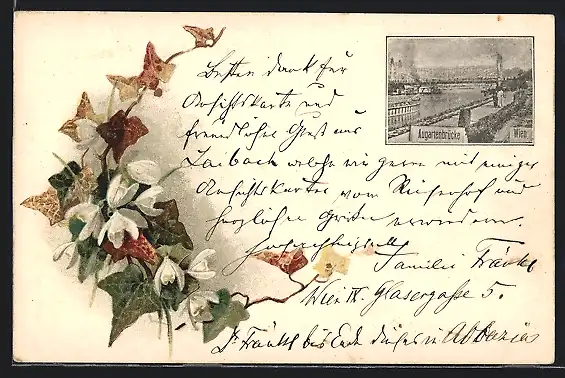 Besten dank für
Ansichtskarte und
freundlichen Gruß aus
Laibach welche wir gerne mit einiger
Ansichtskarten vom und
herzlichen Grüßen erwiedern.
Familie Fränkl
Wien IX. Glasergasse 5.
J. Fränkl bis Ende dieses in Abbazia
Augartenbrücke Wien